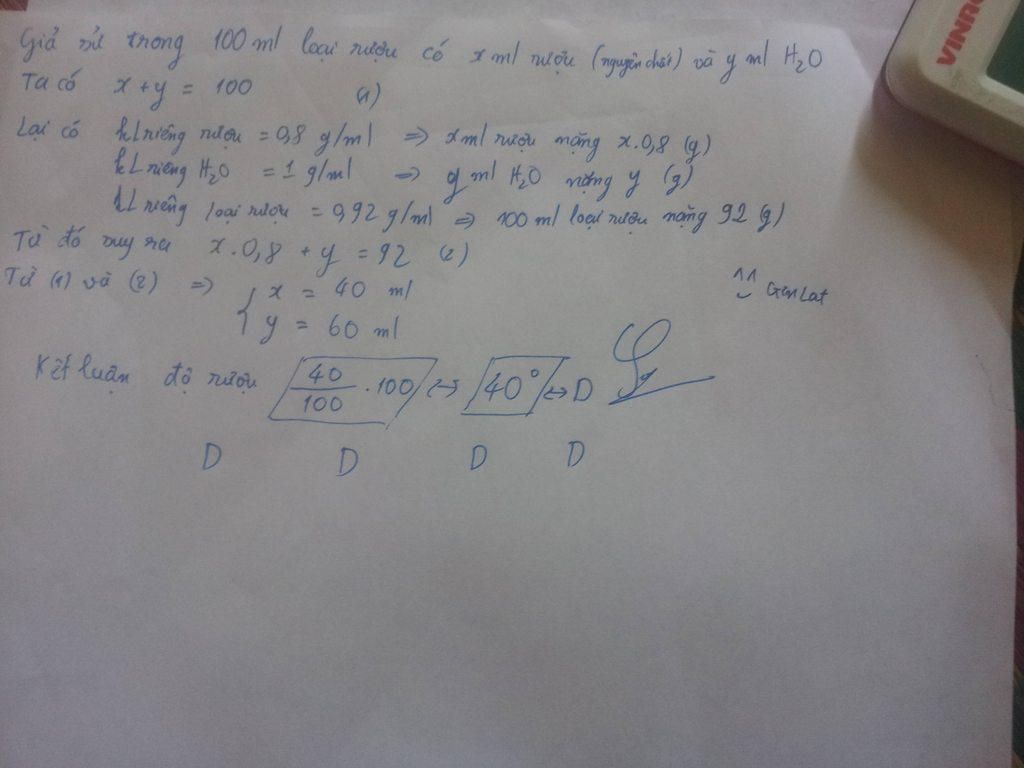 Giả sử trong 100 ml loại rượu có x ml rượu (nguyên chất) và y ml H₂O
Ta có x + y = 100 (1)
Lại có kL riêng rượu = 0,8 g/ml => x ml rượu nặng x.0,8 (g)
kL riêng H₂O = 1 g/ml => y ml H₂O nặng y (g)
kL riêng loại rượu = 0,92 g/ml => 100 ml loại rượu nặng 92 (g)
Từ đó suy ra x.0,8 + y = 92 (2)
Từ (1) và (2) => { x = 40 ml
y = 60 ml
^^ GenLat
Kết luận độ rượu 40/100 .100 <-> 40° <-> D
D D D D
VINA